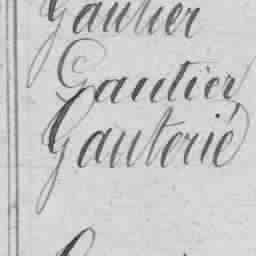 Gautier
Gautier
Gauterie